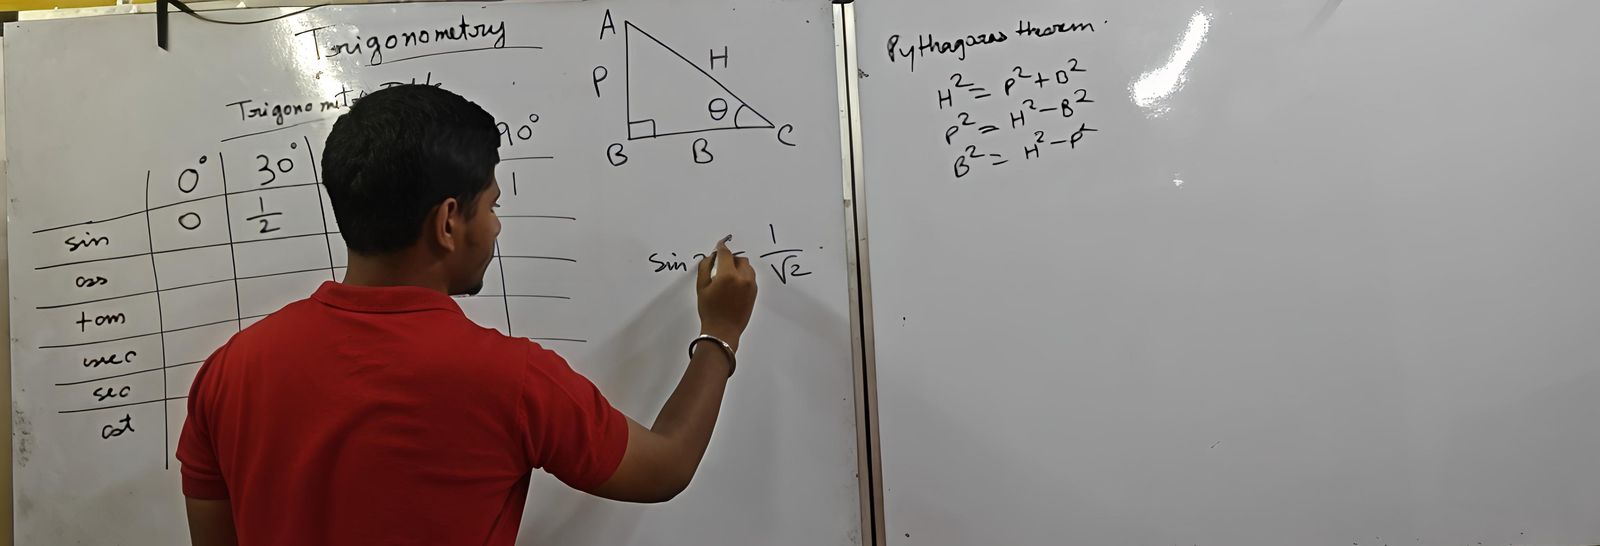 Trigonometry
Trigonomet
0° 30° 90°
sin 0 1/2 1
cos
tan
sec
cot
A
P H
θ
B B C
sin = 1/√2
Pythagoras theorem
H² = P² + B²
P² = H² - B²
B² = H² - P²